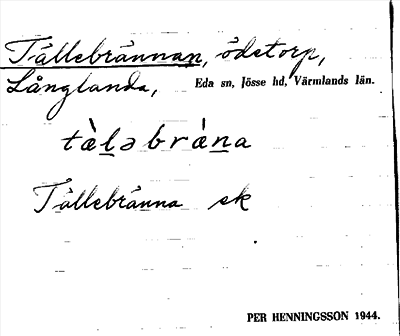 Tällebrännan, ödetorp,
Långlanda, Eda sn, Jösse hd, Värmlands län.
tὰl̠əbrὰn̠a
Tällebränna sk
PER HENNINGSSON 1944.